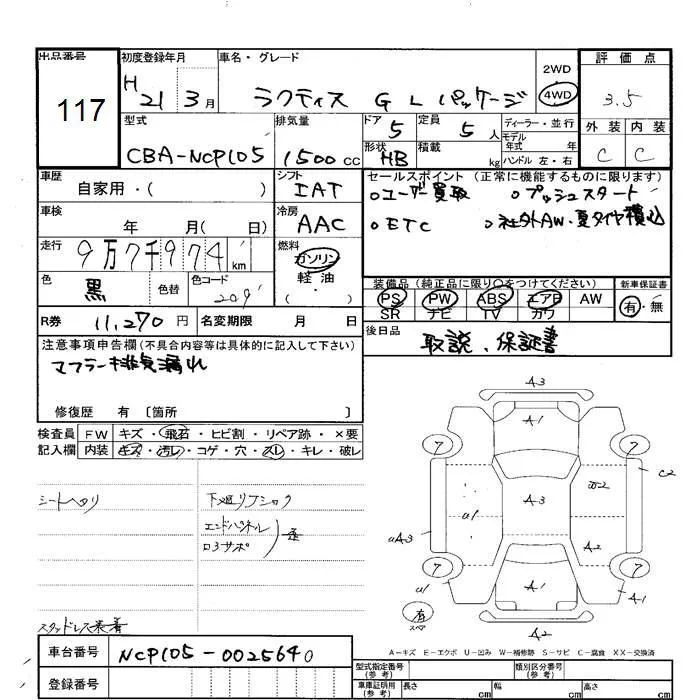 出品番号 初度登録年月 車名・グレード 2WD 評価点
117 H 21 3月 ラクティス G L パッケージ 4WD 3.5
外装 内装
C C
型式 排気量 ドア 5 定員 5人 ディーラー・並行
モデル年式 年
CBA-NCP105 1500cc 形状 HB 積載 kg ハンドル 左・右
車歴 シフト セールスポイント (正常に機能するものに限ります)
自家用・( ) IAT ○ユーザー買取 ○プッシュスタート
車検 冷房 ○ETC ○社外AW、夏タイヤ積込
年 月( 日) AAC
走行 燃料
9万7千974km ガソリン
軽油
・
色 黒 色替 色コード 209
装備品(純正品に限り○をつけてください) 新車保証書
PS PW ABS エアB AW 有・無
SR ナビ TV カワ
R券 11,270円 名変期限 月 日
後日品 取説、保証書
注意事項申告欄(不具合内容等は具体的に記入して下さい)
マフラー排気漏れ
修復歴 有 〔箇所 〕
検査員 FW キズ・飛石・ヒビ割・リペア跡・×要
記入欄 内装 キズ・汚レ・コゲ・穴・スレ・キレ・破レ
シートヘタリ 下廻りフショク
エンドパネル
ロアサポ
スタッドレス装着
A3
A1
7 7
C2
A3 U2
U1
A2
UA3
7 7
U1 A1 A1
有
スペア
A2
A-キズ E-エクボ U-凹み W-補修跡 S-サビ C-腐食 XX-交換済
車台番号 NCP105-0025640
登録番号
型式指定番号(参考) 類別区分番号(参考)
車庫証明用(参考) 長さ cm 幅 cm 高さ cm